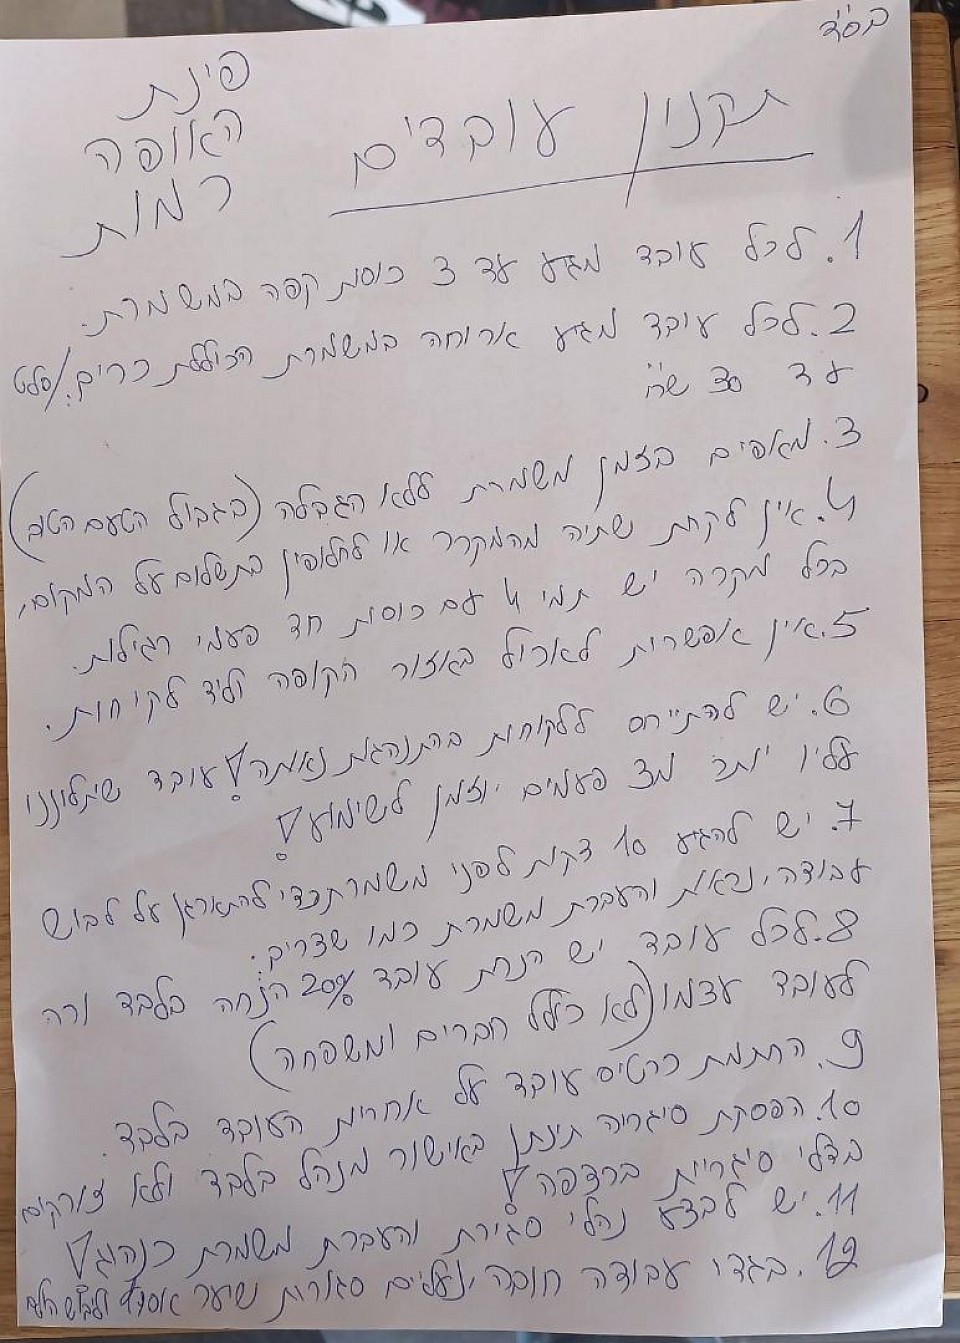 בס״ד
פינת
האופה
רמות
תקנון עובדים
1. לכל עובד מגיע עד 3 כוסות קפה במשמרת.
2. לכל עובד מגיע ארוחה במשמרת הכוללת כריך/סלט
עד 30 ש״ח
3. מאפים בזמן משמרת ללא הגבלה (בגבול הטעם הטוב)
4. אין לקחת שתיה מהמקרר או לחלופין בתשלום על המקום,
בכל מקרה יש תמי 4 עם כוסות חד פעמי רגילות.
5. אין אפשרות לאכול באזור הקופה וליד לקוחות.
6. יש להתייחס ללקוחות בהתנהגות נאותה! עובד שיתלוננו
עליו יותר מ3 פעמים יוזמן לשימוע!
7. יש להגיע 10 דקות לפני משמרת כדי להתארגן על לבוש
עבודה, נראות והעברת משמרת כמו שצריך.
8. לכל עובד יש הנחת עובד 20% הנחה בלבד וזה
לעובד עצמו (לא כולל חברים ומשפחה)
9. החתמת כרטיס עובד על אחריות העובד בלבד.
10. הפסקת סיגריה תינתן באישור מנהל בלבד ולא זורקים
בדלי סיגריות ברצפה!
11. יש לבצע נהלי סגירת והעברת משמרת כנהוג!
12. בגדי עבודה חובה, נעליים סגורות שיער אסוף